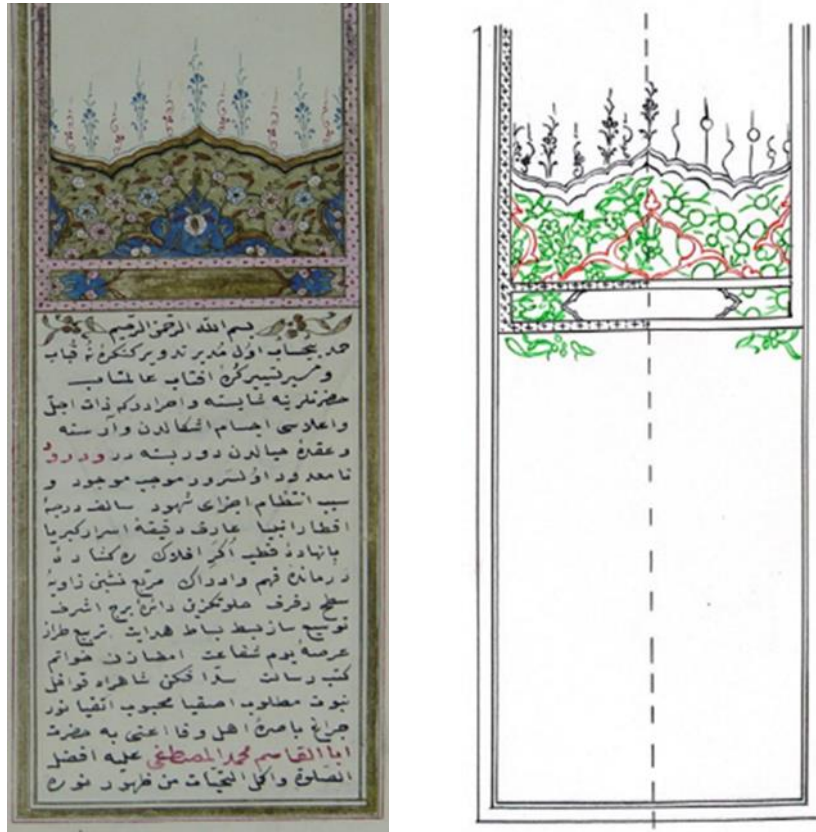 بسم الله الرحمن الرحيم
حمد بيحساب اول مدير تدوير كنكرهٔ نه قباب
و مسير تسيير كرهٔ افتاب عالمتاب
حضرتلرينه شايسته و احرادر كه ذات اجل
و اعلاسى اجسام اشكالدن وآرسته
و عقدهٔ حيالدن دور بسته در ودرود
نامعدود اول سرور موجب موجود و
سبب انتظام اجزاى شهود سالف درجهٔ
اقطار انبيا عارف دقيقهٔ اسرار كبريا
پانهادهٔ قطب اكر افلاك ره كشادهٔ
درماندهٔ فهم وادراك مربع نشين زاويهٔ
سطح رفرف جلوتكزين دائرهٔ برج اشرف
توسيع ساز بسط بساط هدايت تربيع طراز
عرصهٔ يوم شفاعت امضازن خواتم
كتب رسالت سدا فكن شاهراه قوافل
نبوت مطلوب اصفيا محبوب اتقيا نور
چراغ باصرهٔ اهل وفا اعنى به حضرت
ابا القاسم محمد المصطفى عليه افضل
الصلوة واكمل التحيات من ظهور نوره